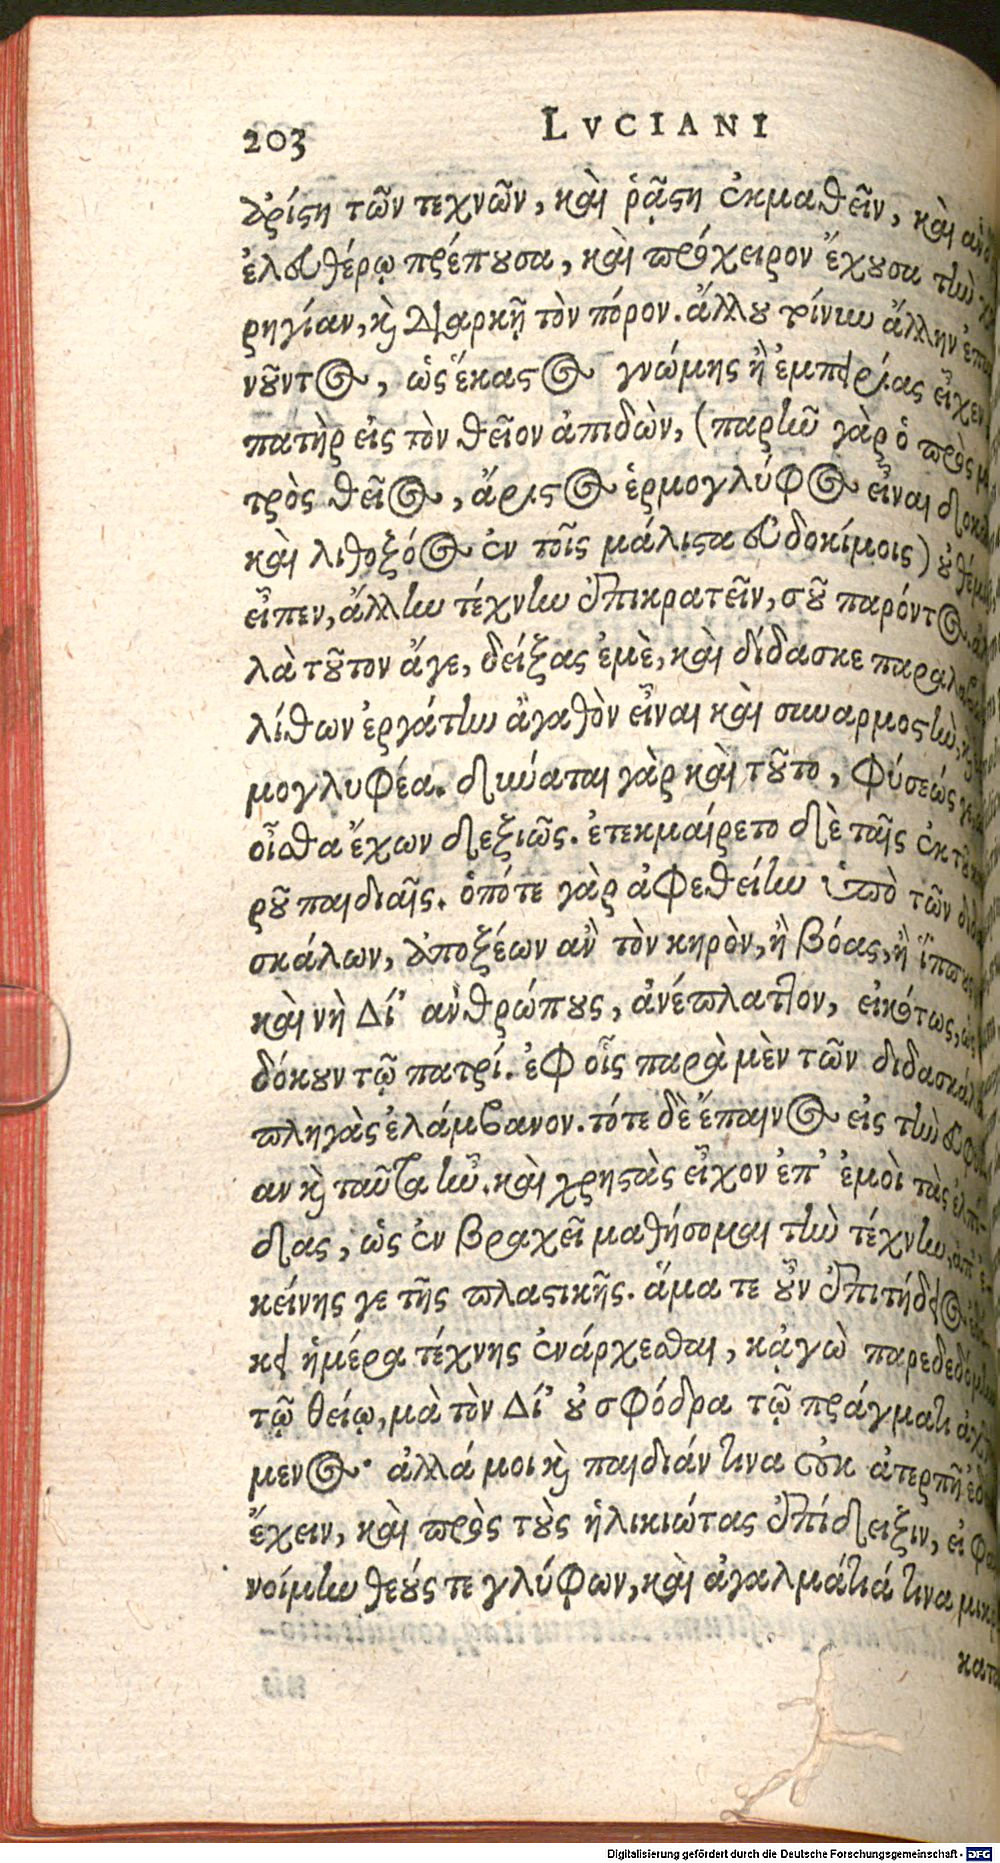 203 LVCIANI
ἀρίστη τῶν τεχνῶν, καὶ ῥᾴστη ἐκμαθεῖν, καὶ
ἐλευθέρῳ πρέπουσα, καὶ πρόχειρον ἔχουσα τὴν
ρηγίαν, κὶ διαρκῆ τὸν πόρον. ἄλλου τοίνυν ἄλλην
νοῦντος, ὡς ἕκαστος γνώμης ἢ ἐμπειρίας εἶχεν
πατὴρ εἰς τὸν θεῖον ἀπιδὼν, (παρῆν γὰρ ὁ πρὸς
τρὸς θεῖος, ἄριστος ἑρμογλύφος εἶναι
καὶ λιθοξόος ἐν τοῖς μάλιστα εὐδοκίμοις) οὐ
εἶπεν, ἄλλην τέχνην ἐπικρατεῖν, σοῦ παρόντος.
λὰ τοῦτον ἄγε, δείξας ἐμὲ, καὶ δίδασκε
λίθων ἐργάτην ἀγαθὸν εἶναι καὶ συναρμοστὴν,
μογλυφέα. δύναται γὰρ καὶ τοῦτο, φύσεώς
οἶσθα ἔχων δεξιῶς. ἐτεκμαίρετο δὲ ταῖς ἐκ
ροῦ παιδιαῖς. ὁπότε γὰρ ἀφεθείην ὑπὸ τῶν
σκάλων, ἀποξέων ἂν τὸν κηρὸν, ἢ βόας, ἢ
καὶ νὴ Δί᾽ ἀνθρώπους, ἀνέπλαττον, εἰκότως,
δόκουν τῷ πατρί. ἐφ οἷς παρὰ μὲν τῶν
πληγὰς ἐλάμβανον. τότε δὲ ἔπαινος εἰς τὴν
αν κὶ ταῦτα ἦν. καὶ χρηστὰς εἶχον ἐπ᾽ ἐμοὶ τὰς ἐλπί-
δας, ὡς ἐν βραχεῖ μαθήσομαι τὴν τέχνην, ἀπ᾽ ἐ-
κείνης γε τῆς πλαστικῆς. ἅμα τε οὖν ἐπιτήδειος
κει ἡμέρα τέχνης ἐνάρχεσθαι, κᾀγὼ
τῷ θείῳ, μὰ τὸν Δί᾽ οὐ σφόδρα τῷ πράγματι
μενος· ἀλλά μοι κὶ παιδιάν τινα οὐκ ἀτερπῆ
ἔχειν, καὶ πρὸς τοὺς ἡλικιώτας ἐπίδειξιν, εἰ
νοίμην θεούς τε γλύφων, καὶ ἀγαλμάτιά τινα
κατα